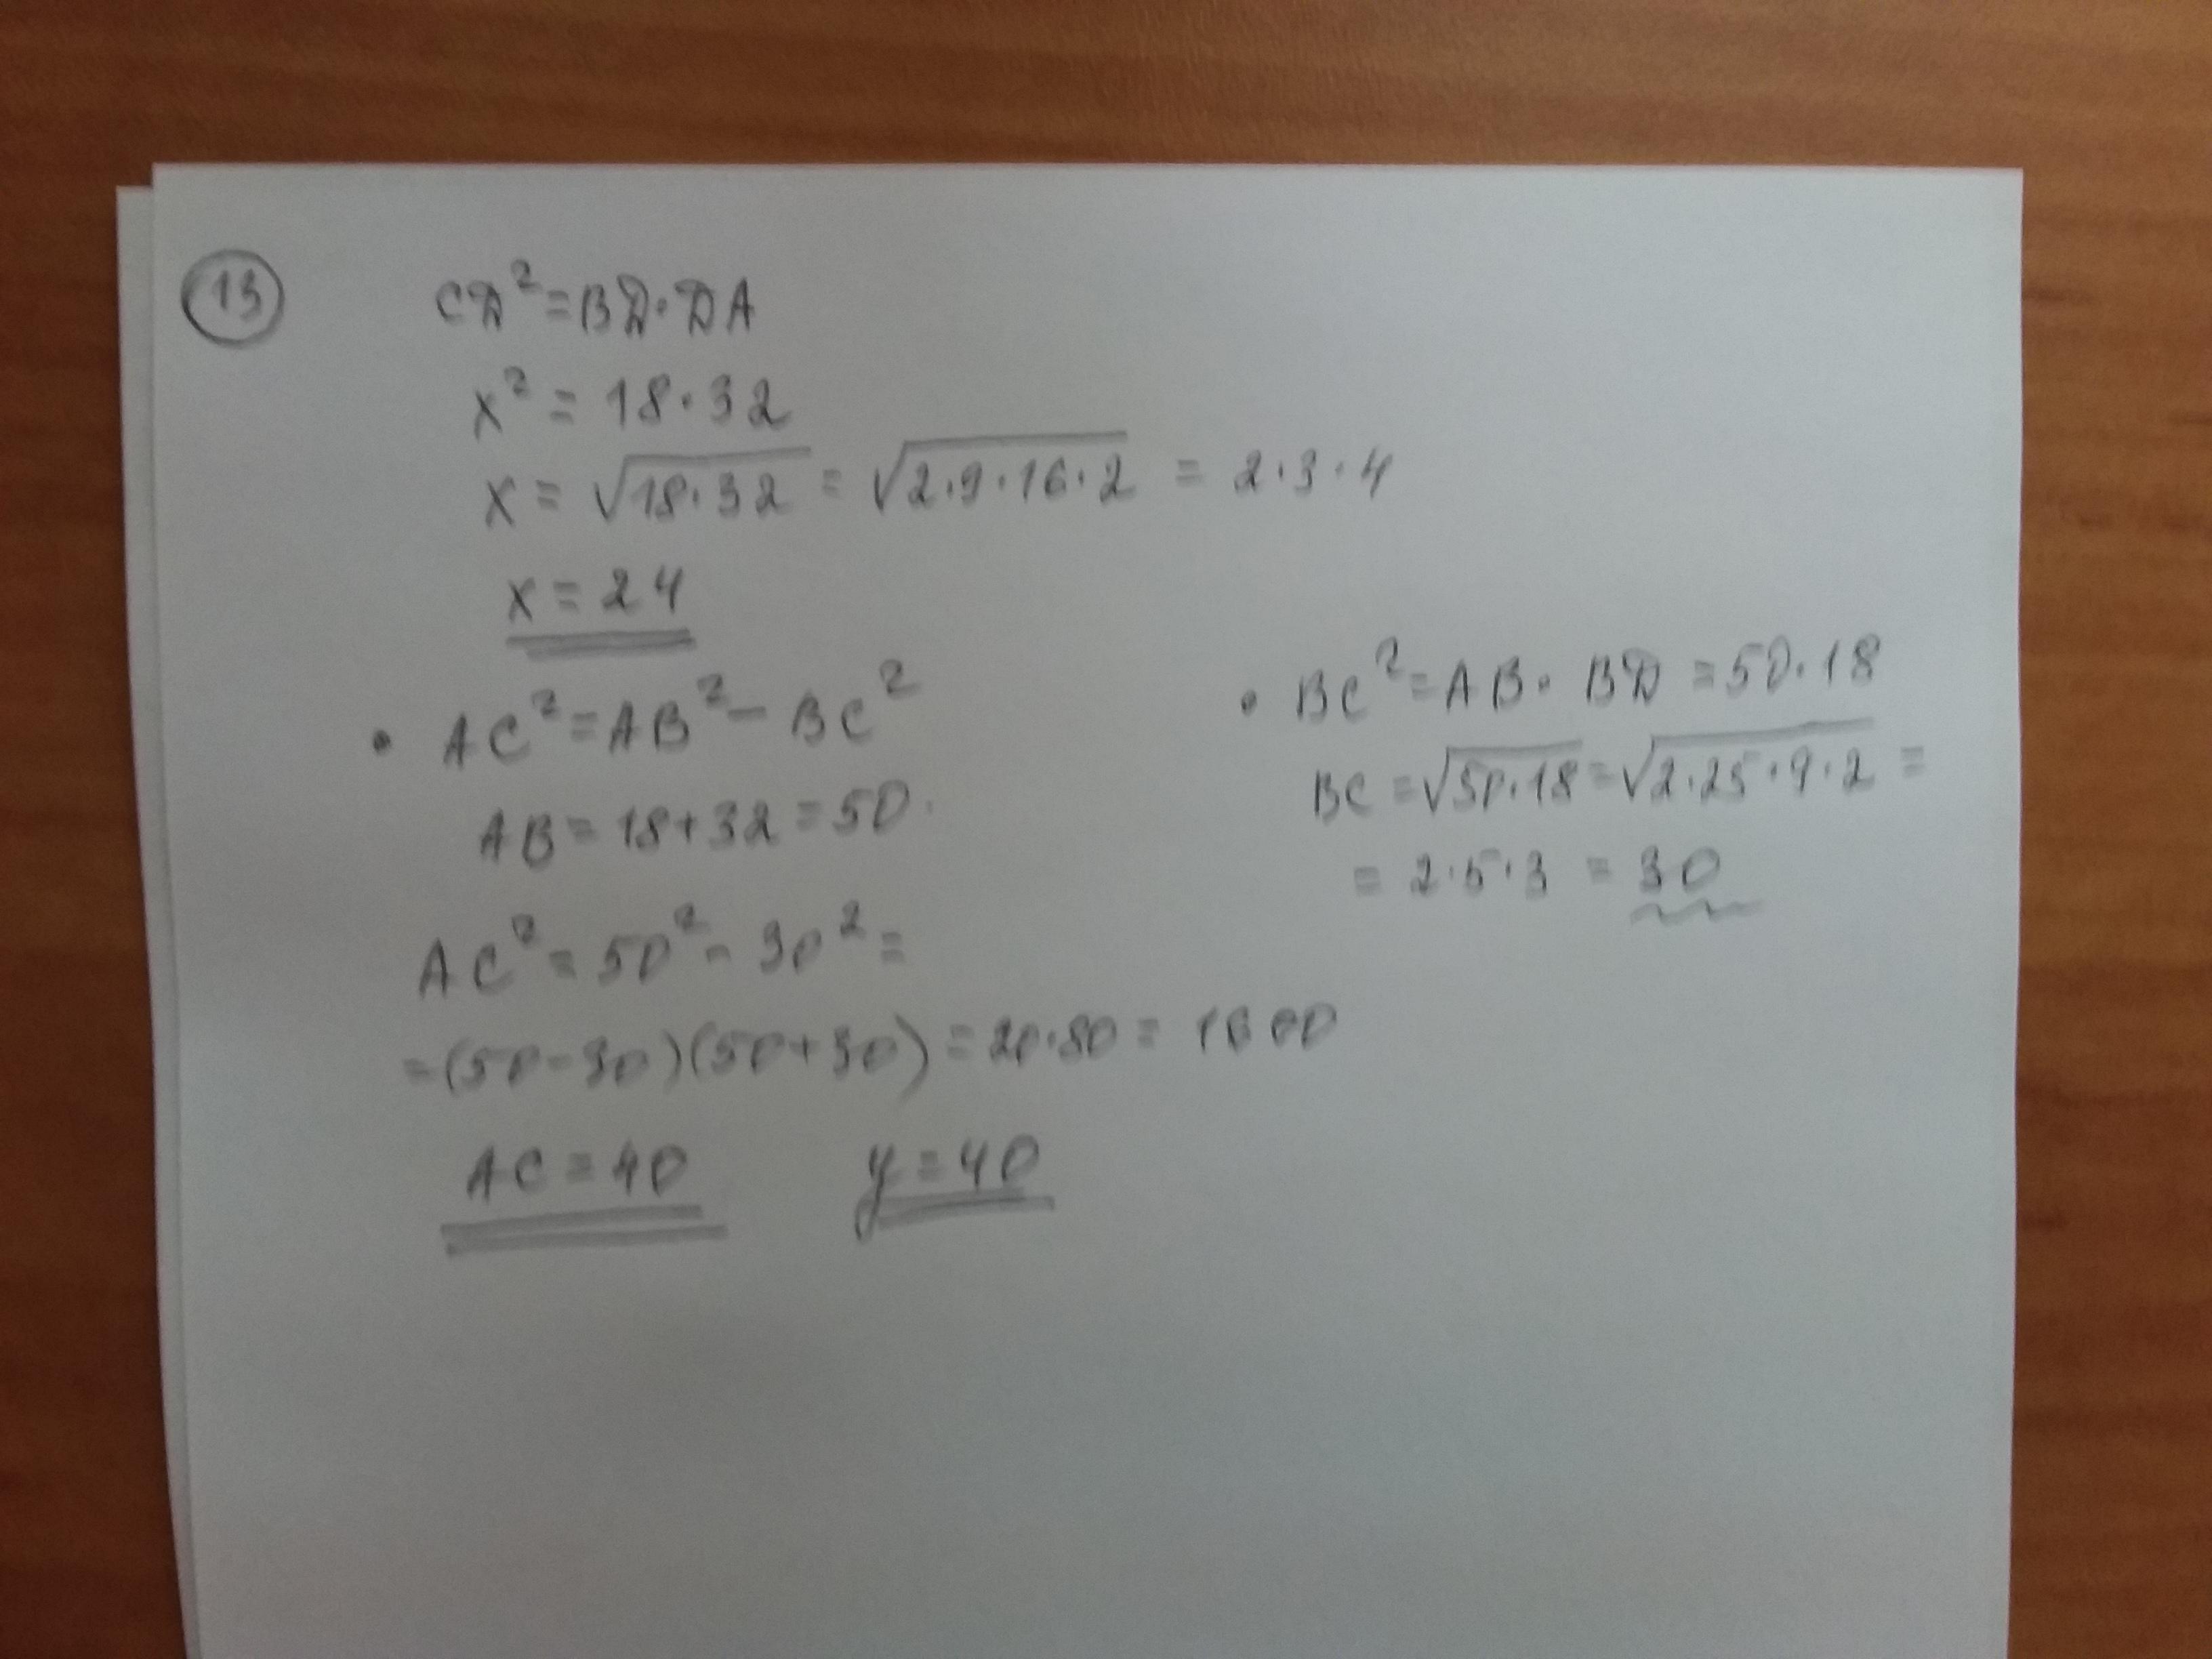 13
CD² = BD · DA
x² = 18 · 32
x = √18·32 = √2·9·16·2 = 2·3·4
x = 24
• AC² = AB² - BC²
AB = 18+32 = 50.
AC² = 50² - 30² =
= (50-30)(50+30) = 20·80 = 1600
AC = 40 y = 40
• BC² = AB · BD = 50·18
BC = √50·18 = √2·25·9·2 =
= 2·5·3 = 30